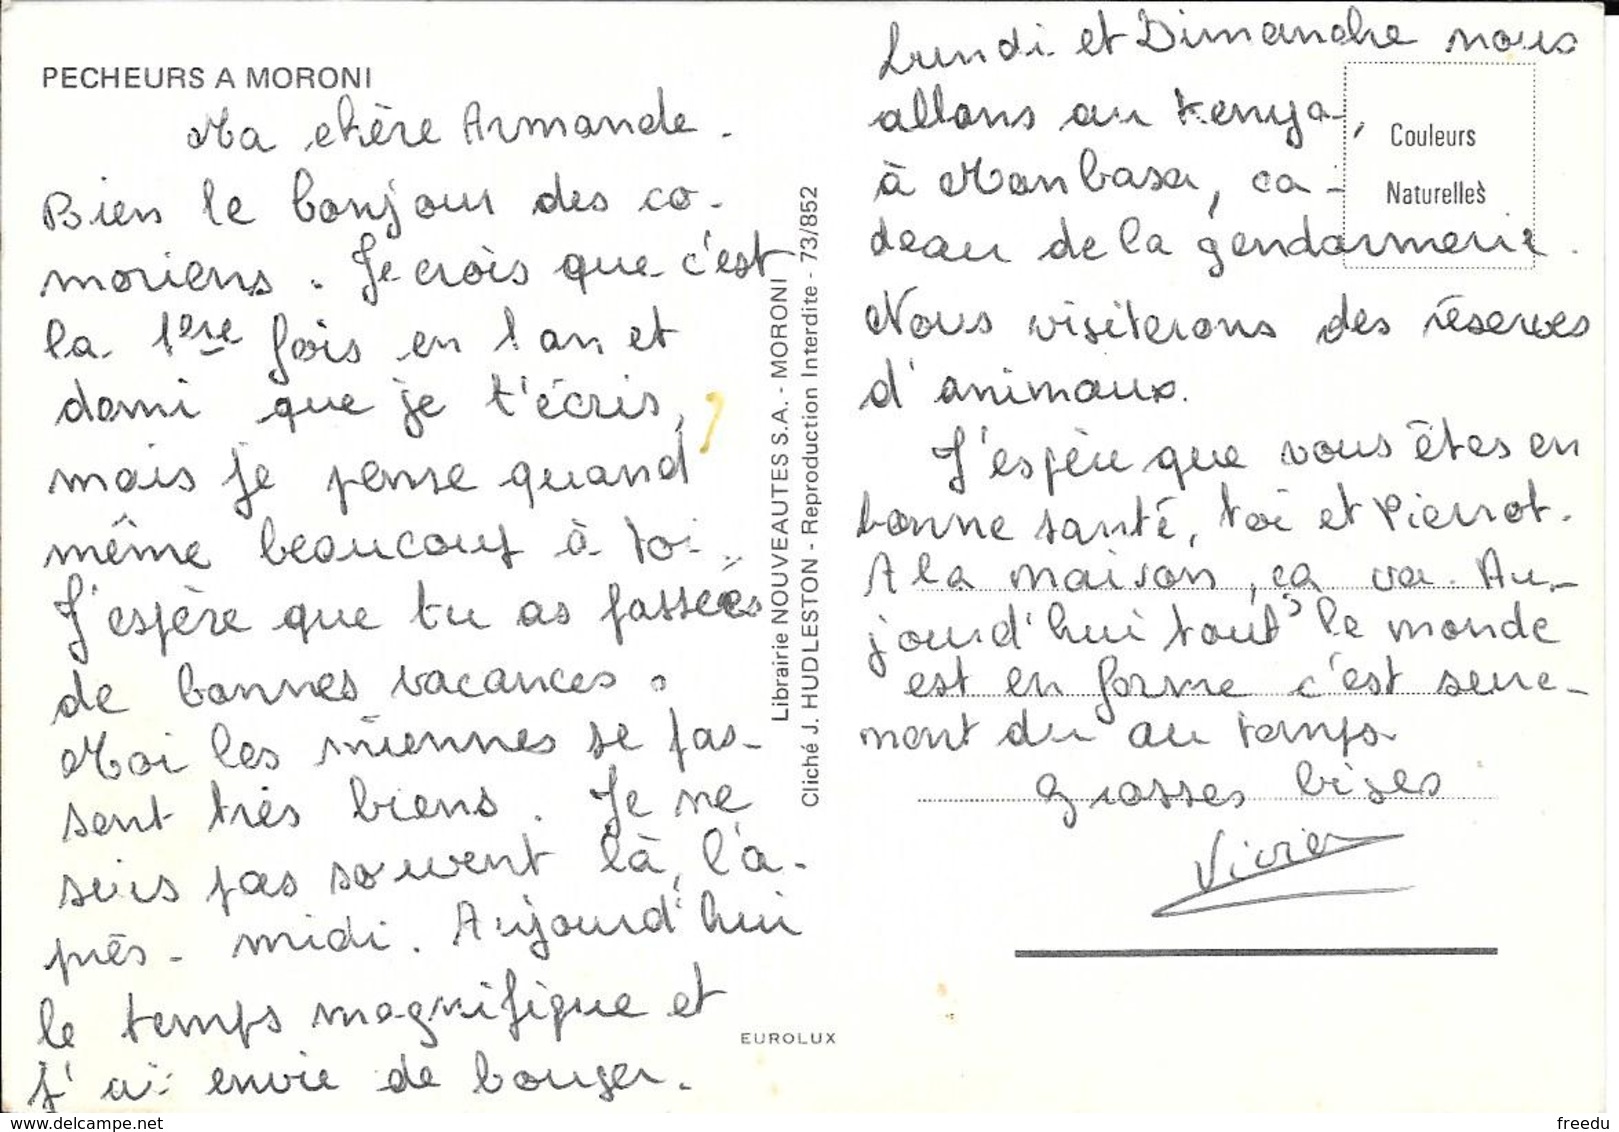 PECHEURS A MORONI
Ma chère Armande.
Bien le bonjour des co-
moriens. Je crois que c'est
la 1ere fois en 1 an et
demi que je t'écris,
mais je pense quand
même beaucoup à toi.
J'espère que tu as passées
de bonnes vacances.
Moi les miennes se pas-
sent très biens. Je ne
suis pas souvent là, l'a-
près-midi. Aujourd'hui
le temps magnifique et
j'ai envie de bouger.
Librairie NOUVEAUTES S.A. - MORONI
Cliché J. HUDLESTON - Reproduction Interdite - 73/852
EUROLUX
Lundi et Dimanche nous
allons au Kenya,
à Monbasa, ca-
deau de la gendarmerie.
Couleurs
Naturelles
Nous visiterons des réserves
d'animaux.
J'espère que vous êtes en
bonne santé, toi et Pierrot.
A la maison, ça va. Au-
jourd'hui tout le monde
est en forme c'est sure-
ment du au temps.
Grosses bises
freedu
delcampe.net